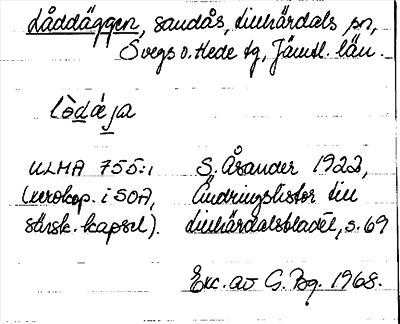 Låddäggen, sandås, Linhärdals sn,
Svegs o. Hede tg, Jämtl. län.
lò̀dǽja
ULMA 755:1 S. Åsander 1922,
(xerokop. i SOA, Ändringslistor till
särsk. kapsel). Linhärdalsbladet, s. 69
Exc. av G. Bg. 1968.